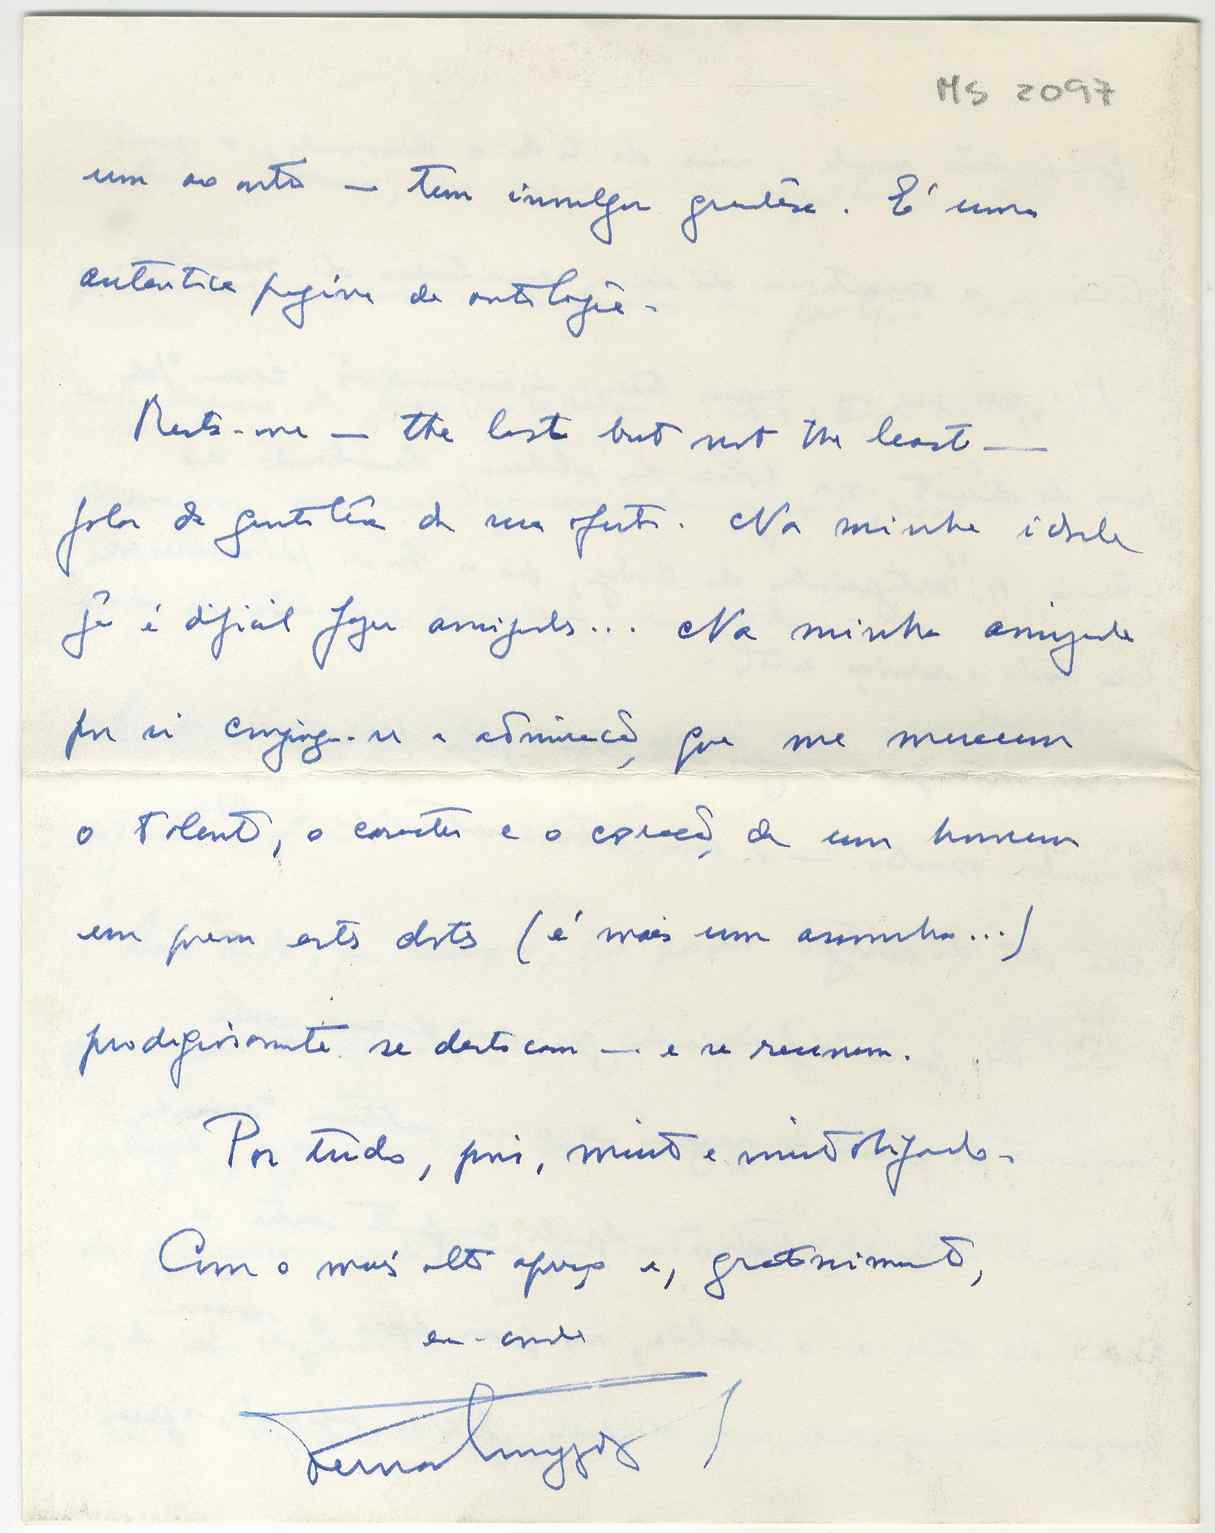 MS 2097
um ao outro — tem invulgar grandêsa. É uma
autentica página de antologia.
Resta-me — the last but not the least —
falar da gentilêsa da sua oferta. Na minha idade
já é dificil fazer amizades... Na minha amizade
por si conjuga-se a admiração que me merecem
o talento, o caracter e o coração de um homem
em quem estes dotes (é mais um assombro...)
prodigiosamente se destacam — e se reunem.
Por tudo, pois, muito e muito obrigado.
Com o mais alto apreço e,